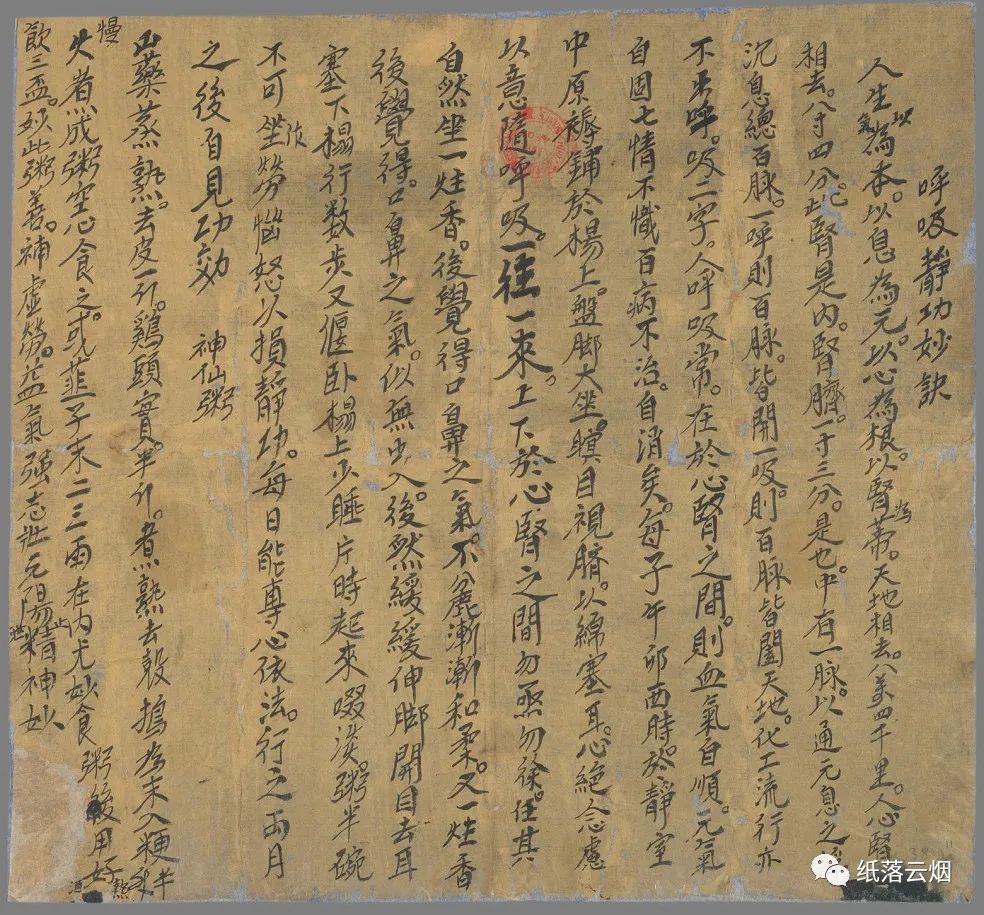 呼吸靜功妙訣
人生以氣為本。以息為元。以心為根。以腎為蒂。天地相去。八萬四千里。人心腎
相去。八寸四分。此腎是內。腎臍。一寸三分。是也。中有一脉。以通元息之
沉息總百脉。一呼則百脉。皆開一吸則百脉皆闔天地。化工流行亦
不出呼。吸二字。人呼吸常。在於心腎之間。則血氣自順。元氣
自固七情不懺百病不治。自消矣。每子午卯酉時。於靜室
中原褥鋪於榻上。盤脚大坐。瞑目視臍。以綿塞耳。心絕念慮
以意隨呼吸。一往一來。上下於心腎之間勿亟勿徐。任其
自然坐一炷香。後覺得口鼻之氣。不麁漸漸和柔。又一炷香
後覺得。口鼻之氣。似無出入。後然緩緩伸脚開目去耳
塞下榻行数步又偃卧榻上少睡片時起來啜淡。粥半碗
不可坐作勞惱怒以損靜功。每日能專心依法。行之兩月
之後自見功効 神仙粥
山藥蒸熟。去皮一斤。鷄頭實。半斤。煮熟去殼搗為末入粳半
慢火煮成粥空心食之。或韮子末二三兩在內尤妙食粥後用好熟酒
飲三盃。妙此粥善。補虛勞。益氣强志壯元陽精神妙
纸落云烟